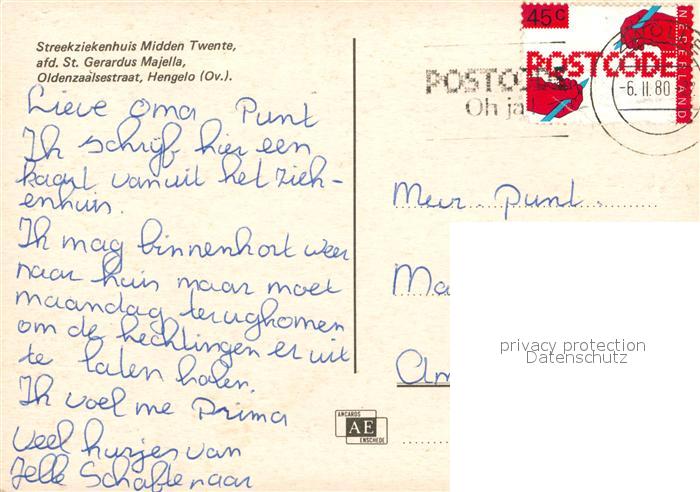 Streekziekenhuis Midden Twente,
afd. St. Gerardus Majella,
Oldenzaalsestraat, Hengelo (Ov.).
Lieve oma Punt
Ik schrijf hier een
kaart vanuit het ziek-
enhuis.
Ik mag binnenkort weer
naar huis maar moet
maandag terugkomen
om de hechtingen er uit
te laten halen.
Ik voel me Prima
veel kusjes van
Jelle Schaftenaar
45c
NEDERLAND
POSTCODE
POSTCODE
Oh ja
-6.II.80
Mevr. Punt.
Ma
Am
privacy protection
Datenschutz
ANCARDS
AE
ENSCHEDE